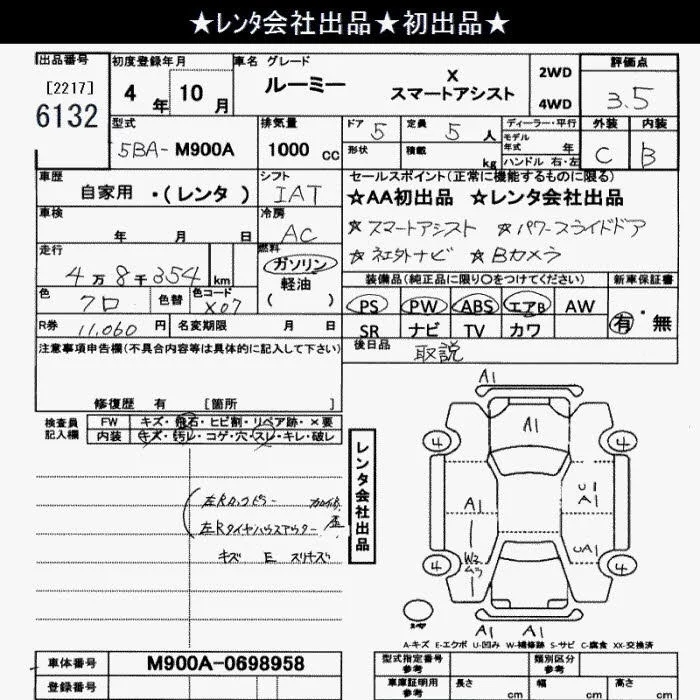 ★レンタ会社出品★初出品★
出品番号 初度登録年月 車名 グレード 評価点
[2217] 6132
4年 10月
ルーミー X スマートアシスト
2WD 4WD
3.5
型式 排気量 ドア 定員 ディーラー・平行 外装 内装
5BA-M900A 1000cc 5 5人
モデル年式 年
C B
形状 積載 kg ハンドル 右・左
車歴 シフト セールスポイント(正常に機能するものに限る)
自家用・(レンタ) IAT
★AA初出品 ★レンタ会社出品
車検 年 月 日 冷房 AC
☆スマートアシスト ☆パワースライドドア
☆社外ナビ ☆Bカメラ
走行 4万8千354km
燃料 ガソリン 軽油 ( )
装備品(純正品に限り○をつけてください) 新車保証書
色 クロ 色替 色コード X07
PS PW ABS エアB AW 有・無
SR ナビ TV カワ
R券 11,060円 名変期限 月 日
後日品 取説
注意事項申告欄(不具合内容等は具体的に記入して下さい)
修復歴 有 [箇所 ]
検査員記入欄 FW キズ・飛石・ヒビ割・リペア跡・×要
内装 キズ・汚レ・コゲ・穴・スレ・キレ・破レ
左Rタイヤハウスアウター
キズ E スリキズ
レンタ会社出品
A1
A1
4 4
A1 U1 A1
W2 UA1
4 4
A1 A1
A-キズ E-エクボ U-凹み W-補修跡 S-サビ C-腐食 XX-交換済
車体番号 M900A-0698958
登録番号
型式指定番号 参考 類別区分 参考
車庫証明用 参考 長さ cm 幅 cm 高さ cm